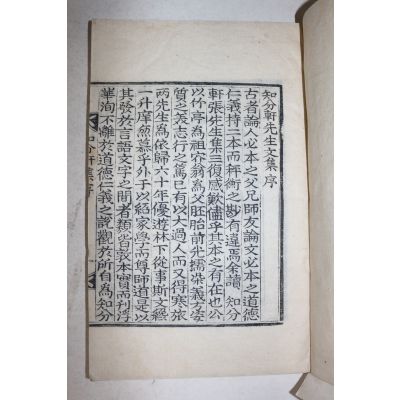 知分軒先生文集序
古者論人必本之父兄師友論文必本之道德
仁義持二本而秤衡之尠有違焉余讀 知分
軒張先生集三復感歎儘乎其本之有在也公
以竹亭爲祖 翁爲父胚胎前光擩染義方姿
質之美志行之篤已有以大過人而又得寒旅
兩先生爲依歸六十年優遊林下從事斯文經
一升 無慕乎外于以紹家學而尊師道是以
其發於言語文字之間者類皆敦本實而利浮
華洵不離於道德仁義之說觀於所自爲知分
知分軒集序